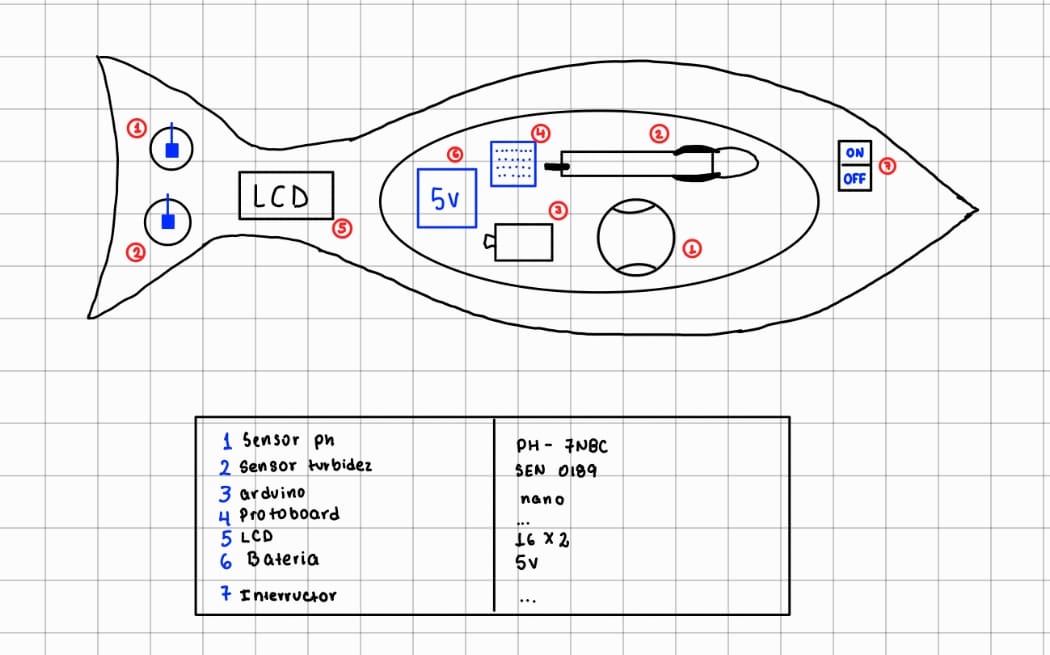 1
4
2
6
ON
7
OFF
LCD
5v
3
5
1
2
1 Sensor ph
PH - 7NBC
2 Sensor turbidez
SEN 0189
3 arduino
nano
4 Protoboard
...
5 LCD
16 X 2
6 Bateria
5v
7 Interructor
...